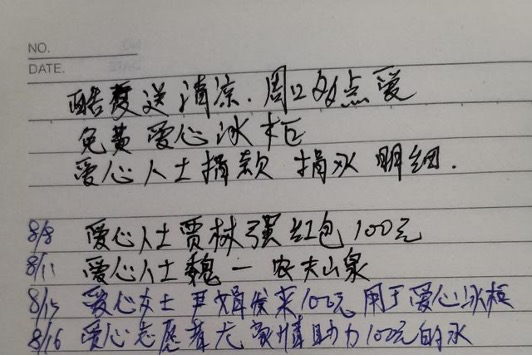 NO.
DATE.
酷夏送清凉.周口好点爱
免费爱心冰柜
爱心人士捐款 捐水 明细.
8/8 爱心人士贾林强红包100元
8/11 爱心人士魏一农夫山泉
8/15 爱心人士 发来100元 用于爱心冰柜
8/16 爱心志愿者尤 助力100元的水